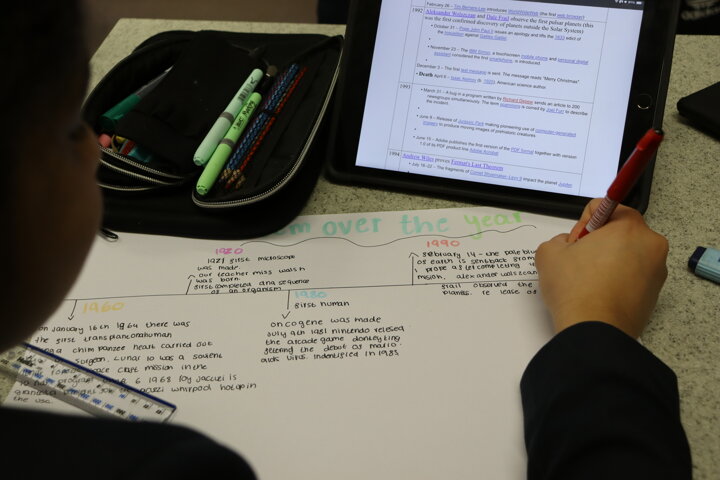 February 26 – Tim Berners-Lee introduces WorldWideWeb (the first web browser)
1992 Aleksander Wolszczan and Dale Frail observe the first pulsar planets (this
was the first confirmed discovery of planets outside the Solar System)
October 31 – Pope John Paul II issues an apology and lifts the 1633 edict of
the Inquisition against Galileo Galilei.
November 23 – The IBM Simon, a touchscreen mobile phone and personal digital
assistant considered the first smartphone, is introduced.
December 3 – The first text message is sent. The message reads "Merry Christmas"
- Death April 6 – Isaac Asimov (b. 1920), American science author
1993
March 31 – A bug in a program written by Richard Depew sends an article to 200
newsgroups simultaneously. The term spamming is coined by Joel Furr to describe
the incident.
June 9 – Release of Jurassic Park making pioneering use of computer-generated
imagery to produce moving images of prehistoric creatures
June 15 – Adobe publishes the first version of the PDF format together with version
1.0 of its PDF product line Adobe Acrobat
1994 Andrew Wiles proves Fermat's Last Theorem
July 16–22 – The fragments of Comet Shoemaker-Levy 9 impact the planet Jupiter
em over the year
1970
1971 first microscope
was made.
our teacher miss walsh
was born
first completed dna sequence
of an organism
1990
february 14 - the pale blu
of earth is sentback from
1 probe after completing
mission, alexander wolszcan
frail observed the
planets. re lease of
1960
on january 16th 1964 there was
the first transplantonahuman
a chimpanzee heart carried out
surgeon. Lunar 10 was a soviet
space craft mission in the
program 6 1968 Roy jacuzi is
whirlpool hottub in
the usa.
1980
first human
oncogene was made
July 9th 1981 nintendo relesed
the arcade game donkeykong
fetering the debut of mario.
aids virus indentified in 1983